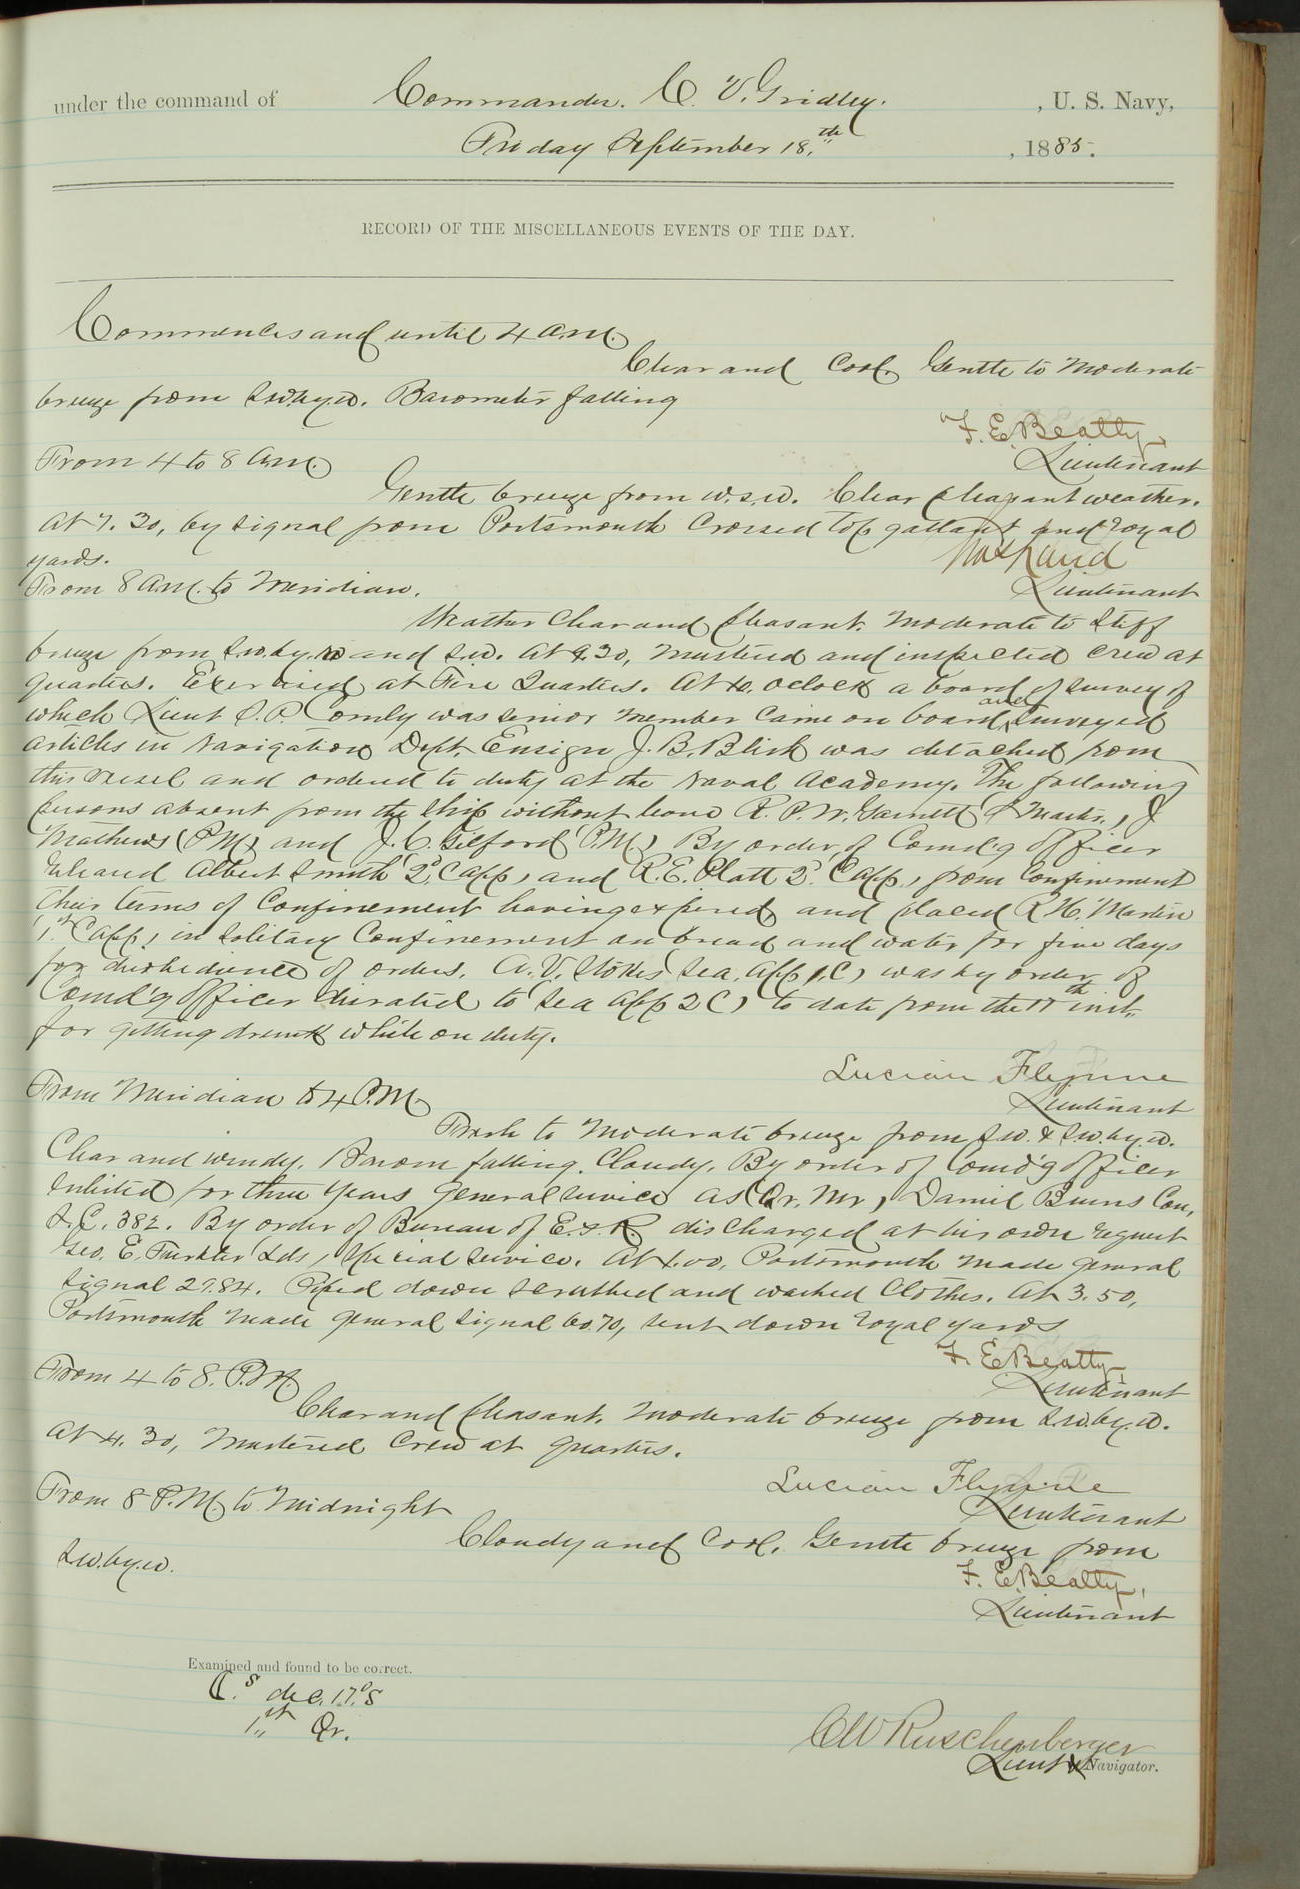 under the command of Commander. C. V. Gridley. , U. S. Navy,
Friday September 18,th , 1885.
RECORD OF THE MISCELLANEOUS EVENTS OF THE DAY.
Commences and until 4 a.m.
Clear and cool. Gentle to moderate
breeze from S.W. by W. Barometer falling
F. E. Beatty,
Lieutenant
From 4 to 8 a.m.
Gentle breeze from W.S.W. Clear pleasant weather.
At 7.30, by signal from Portsmouth crossed top gallant and royal
yards.
Lieutenant
From 8 A.M. to Meridian.
Weather clear and pleasant. Moderate to stiff
breeze from S.W. by W and S.W. At 9.30, mustered and inspected crew at
quarters. Exercised at Fire Quarters. At 10. oclock a board of survey of
which Lieut S. P. Comly was senior member came on board, and surveyed
articles in Navigation Dept. Ensign J. B. Blish was detached from
this vessel and ordered to duty at the Naval Academy. The following
persons absent from the ship without leave R. P. W. Garnett S Mach., J
Mathews (P.M) and J. C. Gilford (P.M.) By order of Comd'g Officer
released Albert Smith 2d. C app, and R. E. Platt 2d. C app, from confinement
their terms of confinement having expired and placed R H. Martin
1st C app, in solitary confinement on bread and water for five days
for disobedience of orders. A. V. Stokes Sea. app 1.C, was by order of
Comd'g Officer disrated to Sea app 2 C, to date from the 17th inst.
for getting drunk while on duty.
Lucian Flynne
Lieutenant
From Meridian to 4 P.M
Fresh to moderate breeze from S.W. & S.W. by W.
Clear and windy. Barom falling. Cloudy. By order of Comd'g Officer
enlisted for three years general service as Qr. Mr, Daniel Burns Con.
S.C. 382. By order of Bureau of E. & R. discharged at his own request
Geo. E. Lds, special service. At 1.00, Portsmouth made general
signal 2784. Piped down scrubbed and washed clothes. At 3.50,
Portsmouth made general signal 6070, sent down royal yards
F. E. Beatty,
Lieutenant
From 4 to 8. P.M.
Clear and pleasant. Moderate breeze from S.W. by W.
At 4.30, mustered crew at quarters.
Lucian Flynne
Lieutenant
From 8 P.M. to Midnight
Cloudy and cool. Gentle breeze from
S.W. by W.
F. E. Beatty,
Lieutenant
Examined and found to be correct.
☾.s dec. 17.° S
1st Qr.
C W Ruschenberger
Lieut & Navigator.